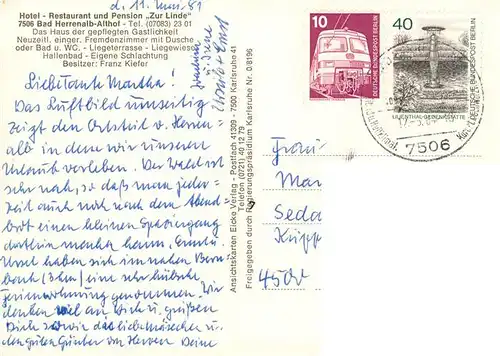 d. 11. Mai. 81
Hotel - Restaurant und Pension „Zur Linde"
7506 Bad Herrenalb-Althof - Tel. (07083) 23 01
Das Haus der gepflegten Gastlichkeit
Neuzeitl. einger. Fremdenzimmer mit Dusche
oder Bad u. WC. - Liegeterrasse - Liegewiese
Hallenbad - Eigene Schlachtung
Besitzer: Franz Kiefer
Liebe Tante Martha!
Das Luftbild umseitig
zeigt den Ortsteil v. Herren-
alb in dem wir unseren
Urlaub verleben. Der Wald ist
sehr nah, so daß man jeder-
zeit auch noch nach dem Abend-
brot einen kleinen Spaziergang
dorthin machen kann.
bach (3 km) eine sehr hübsche
Ferienwohnung genommen. Wir
denken viel an Dich u. grüßen
Dich sowie das liebe u.
den guten Günter von Herzen Deine
u. Ernst
Ansichtskarten Ercke Verlag - Postfach 41309 - 7500 Karlsruhe 41
Telefon (0721) 40 12 79
Freigegeben durch Regierungspräsidium Karlsruhe Nr. 0/8196
10
DEUTSCHE BUNDESPOST BERLIN
40
DEUTSCHE BUNDESPOST BERLIN
LILIENTHAL-GEDENKSTÄTTE
7506
Frau
Mar
Seda
4500